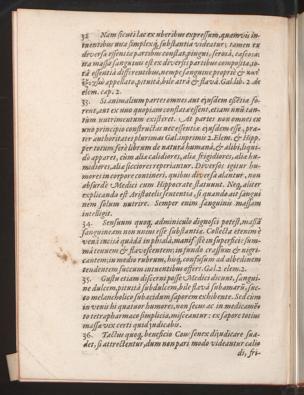 32 Nam sicuti lac ex uberibus expressum, quamvis in-
tuentibus una simplexq́, substantia videatur, tamen ex
diversa essentia partibus constat, pingui, serosa, caseosa: i-
ta massa sanguinis est ex diversis partibus composita, to-
ta essentia differentibus, nempe sanguine propriè &
appellato, pituita, bile atra & flava. Gal. lib. 2. de
elem. cap. 2.
33. Si animalium partes omnes aut ejusdem essetiæ fo-
rent, aut ex uno quopiam constitutæ essent, etiam unũ tan-
tum nutrimentum existeret. At partes non omnes ex
uno principio constructas nec essentiæ ejusdem esse, præ-
ter authoritates plurimas Gal. in primis 2. Elem. & Hipp.
per totum ferè librum de natura humanâ, & alibi, liqui-
dò apparet, cùm alia calidiores, alia frigidiores, alia hu-
midiores, alia sicciores reperiantur. Diversis igitur hu-
mores in corpore contineri, quibus diversa alantur, non
absurdè Medici cum Hippocrate statuunt. Neq, aliter
explicanda est Aristotelis sententia, si quando ait sangui-
nem solum nutrire. Semper enim sanguinis massam
intelligit.
34. Sensuum quoq, adminiculo dignosci potest, massã
sanguineam non unam esse substantiã. Collecta etenim è
venâ incisâ quâdã in phiala, manifestè in superficie: sum-
mâ tenuem & flavescentem: in fundo crassum & nigri-
cantem; in medio rubrum, huiq́, confusum ad albedinem
tendentem succum intuentibus offert. Gal. 2 elem. 2.
35. Gustu etiam discerni posse Medici dicunt, sangui-
ne dulcem, pituitâ subdulcem, bile flavâ subamarũ, suc-
co melancholico subacidum saporem exhibente. Sed cùm
in venis hi quatuor humores, non secus ac in medicamẽ-
to tetrapharmaco simplicia, misceantur: ex sapore totius
massæ vix certi quid judicabis.
36. Tactus quoq, beneficio Com-senex dijudicare sua-
det, si attrectentur, dum non pari modo videantur calio
di, fri-